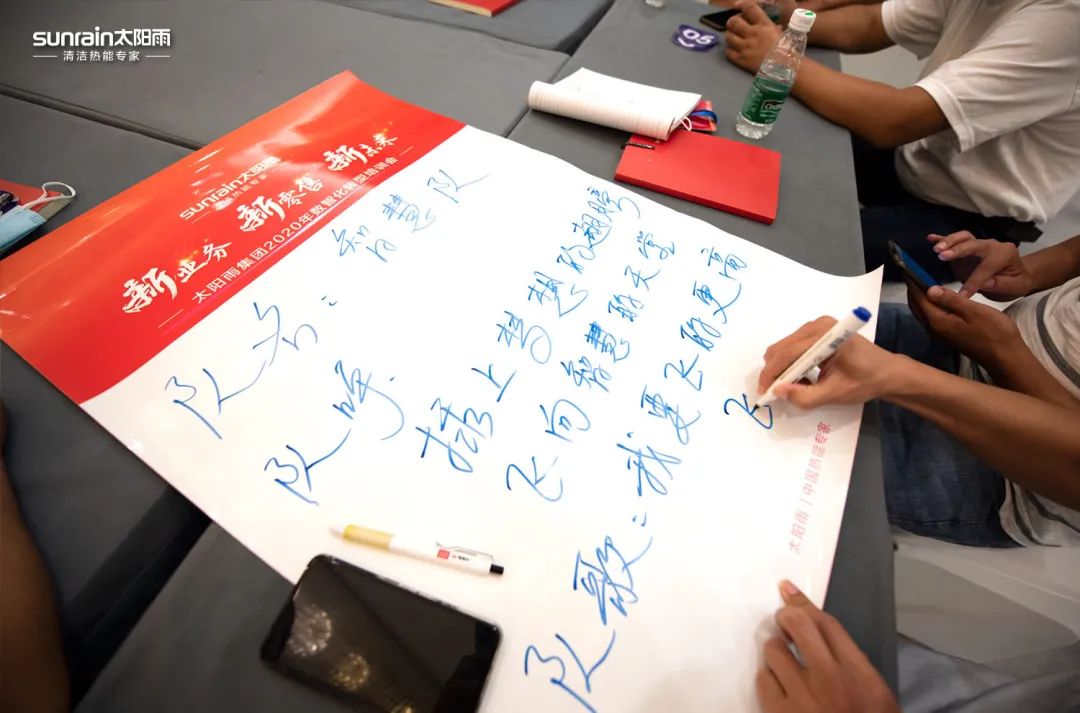 sunrain太阳雨
清洁热能专家
sunrain太阳雨
热能专家
新业务 新零售 新未来
太阳雨集团2020年数智化转型培训会
队名: 智慧队
队呼:
插上梦想的翅膀
飞向智慧的天堂
队歌: 我要飞的更高
飞
太阳雨 | 中国热能专家
05